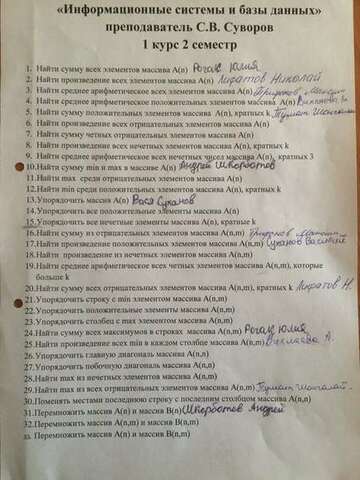 «Информационные системы и базы данных»
преподаватель С.В. Суворов
1 курс 2 семестр
1. Найти сумму всех элементов массива A(n) Рогак Юлия
2. Найти произведение всех элементов массива A(n) Лифатов Николай
3. Найти среднее арифметическое всех элементов массива A(n)
4. Найти среднее арифметическое положительных элементов массива A(n)
5. Найти сумму положительных элементов массива A(n), кратных k
6. Найти произведение всех отрицательных элементов массива A(n)
7. Найти сумму четных отрицательных элементов массива A(n)
8. Найти произведение всех нечетных элементов массива A(n), кратных k
9. Найти среднее арифметическое всех нечетных чисел массива A(n), кратных 3
10. Найти сумму min и max в массиве A(n) Андрей Шкорботов
11. Найти max среди отрицательных элементов массива A(n)
12. Найти min среди положительных элементов массива A(n), кратных k
13. Упорядочить массив A(n) Вася Суханов
14. Упорядочить все положительные элементы массива A(n)
15. Упорядочить все нечетные элементы массива A(n), кратных k
16. Найти сумму из отрицательных элементов массива A(n,m)
17. Найти произведение из положительных элементов массива A(n,m) Суханов Василий
18. Найти произведение из нечетных элементов массива A(n,m)
19. Найти среднее арифметическое всех четных элементов массива A(n,m), которые больше k
20. Найти сумму всех отрицательных элементов массива A(n,m), кратных k Лифатов Н.
21. Упорядочить строку с min элементом массива A(n,m)
22. Упорядочить положительные элементы массива A(n,m)
23. Упорядочить столбец с max элементом массива A(n,m)
24. Найти сумму всех максимумов в строках массива A(n,m) Рогак Юлия
25. Найти произведение всех min в каждом столбце массива A(n,m)
26. Упорядочить главную диагональ массива A(n,n)
27. Упорядочить побочную диагональ массива A(n,n)
28. Найти max из нечетных элементов массива A(n,m)
29. Найти max из всех отрицательных элементов массива A(n,m)
30. Поменять местами последнюю строку с последним столбцом массива A(n,n)
31. Перемножить массив A(n) и массив B(n) Шкорботов Андрей
32. Перемножить массив A(n,m) и массив B(m)
33. Перемножить массив A(n,m) и массив B(n,m)